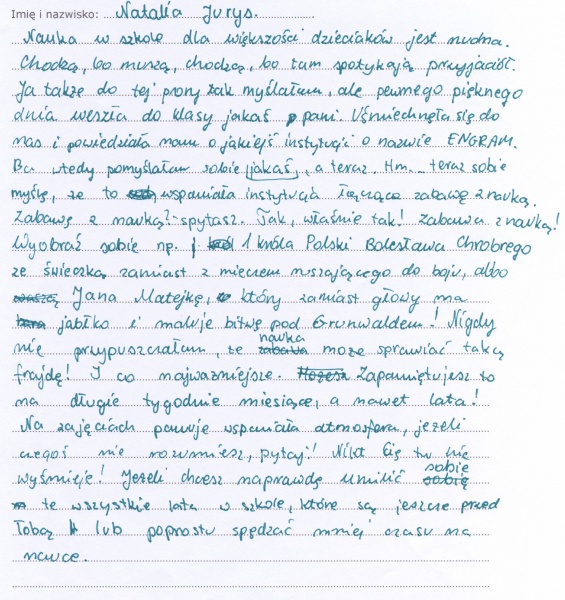 Imię i nazwisko: Natalia Jurys.
Nauka w szkole dla większości dzieciaków jest nudna.
Chodzą, bo muszą, chodzą, bo tam spotykają przyjaciół.
Ja także do tej prony tak myślałam, ale pewnego pięknego
dnia weszła do klasy jakaś pani. Uśmiechnęła się do
nas i powiedziała nam o jakiejś instytucji o nazwie ENGRAM.
Ba wtedy pomyślałam sobie jakaś, a teraz. Hm... teraz sobie
myślę, że to wspaniała instytucja łącząca zabawę z nauką.
Zabawę z nauką?- spytasz. Tak, właśnie tak! Zabawa z nauką!
Wyobraź sobie np. 1 króla Polski Bolesława Chrobrego
ze świeczką zamiast z mieczem ruszającego do boju, albo
Jana Matejkę, który zamiast głowy ma
jabłko i maluje bitwę pod Grunwaldem! Nigdy
nie przypuszczałam, że nauka może sprawiać taką
frajdę! I co najważniejsze. Zapamiętujesz to
na długie tygodnie miesiące, a nawet lata!
Na zajęciach panuje wspaniała atmosfera, jeżeli
czegoś nie rozumiesz, pytaj! Nikt Cię tu nie
wyśmieje! Jeżeli chcesz naprawdę umilić sobie
te wszystkie lata w szkole, które są jeszcze przed
Tobą lub poprostu spędzać mniej czasu na
nauce.